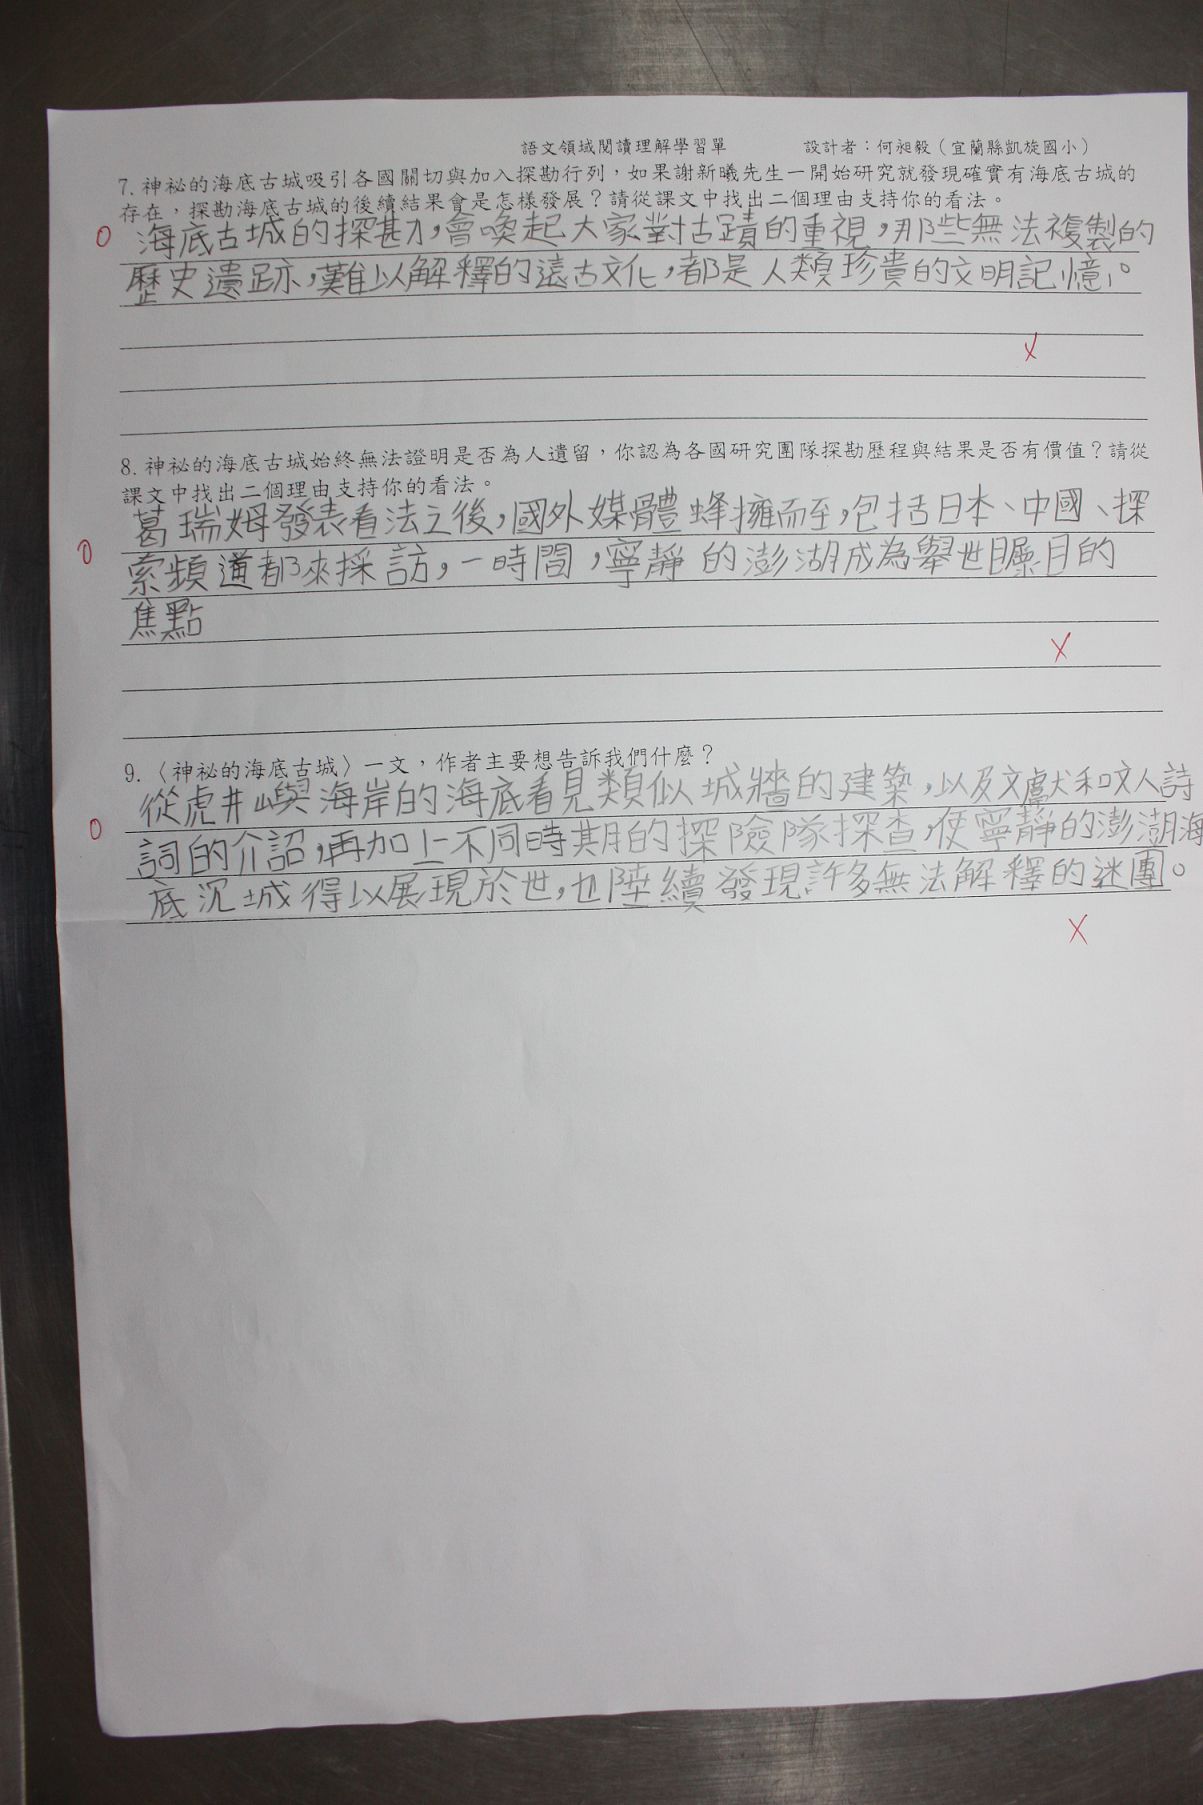 語文領域閱讀理解學習單 設計者：何昶毅（宜蘭縣凱旋國小）
7. 神祕的海底古城吸引各國關切與加入探勘行列，如果謝新曦先生一開始研究就發現確實有海底古城的
存在，探勘海底古城的後續結果會是怎樣發展？請從課文中找出二個理由支持你的看法。
0 海底古城的探勘，會喚起大家對古蹟的重視，那些無法複製的
歷史遺跡，難以解釋的遠古文化，都是人類珍貴的文明記憶。
X
8. 神祕的海底古城始終無法證明是否為人遺留，你認為各國研究團隊探勘歷程與結果是否有價值？請從
課文中找出二個理由支持你的看法。
葛瑞姆發表看法之後，國外媒體蜂擁而至，包括日本、中國、探
0 索頻道都來採訪，一時間，寧靜的澎湖成為舉世矚目的
焦點
X
9.〈神祕的海底古城〉一文，作者主要想告訴我們什麼？
從虎井嶼海岸的海底看見類似城牆的建築，以及文獻和文人詩
0 詞的介紹，再加上不同時期的探險隊探查，使寧靜的澎湖海
底沉城得以展現於世，也陸續發現許多無法解釋的迷團。
X